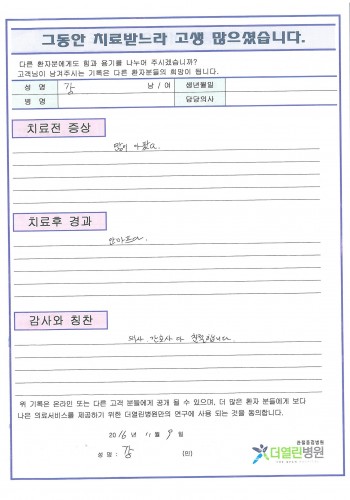 그동안 치료받느라 고생 많으셨습니다.
다른 환자분에게도 힘과 용기를 나누어 주시겠습니까?
고객님이 남겨주시는 기록은 다른 환자분들의 희망이 됩니다.
성 명 강 남 / 여 생년월일
병 명 담당의사
치료전 증상
많이 아팠다.
치료후 경과
안아프다.
감사와 칭찬
의사 간호사 다 친절합니다.
위 기록은 온라인 또는 다른 고객 분들에게 공개 될 수 있으며, 더 많은 환자 분들에게 보다
나은 의료서비스를 제공하기 위한 더열린병원만의 연구에 사용 되는 것을 동의합니다.
2016년 11월 9일
성 명 : 강 (인)
관절중점병원
더열린병원